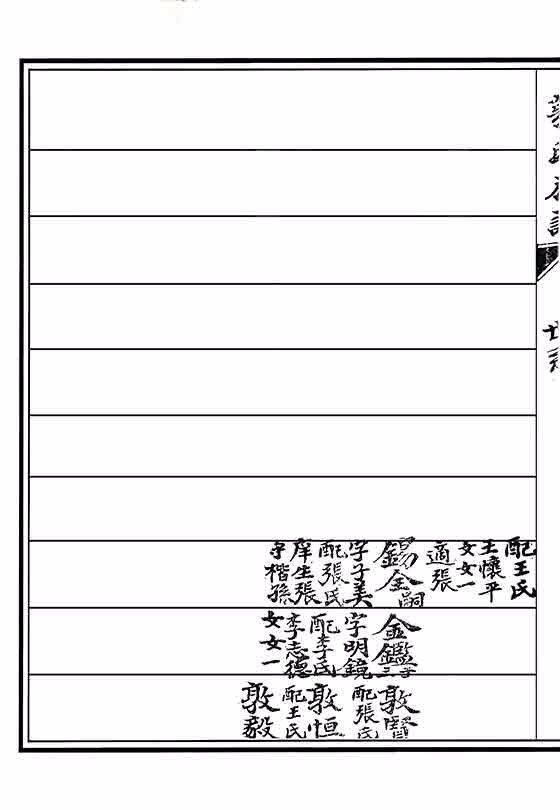 配王氏
王懷平
女女一
適張
錫金嗣
字子美
配張氏
庠生張
字楷孫
金鑑子三
字明鏡
配李氏
李志德
女女一
敦賢
配張氏
敦恒
配王氏
敦毅